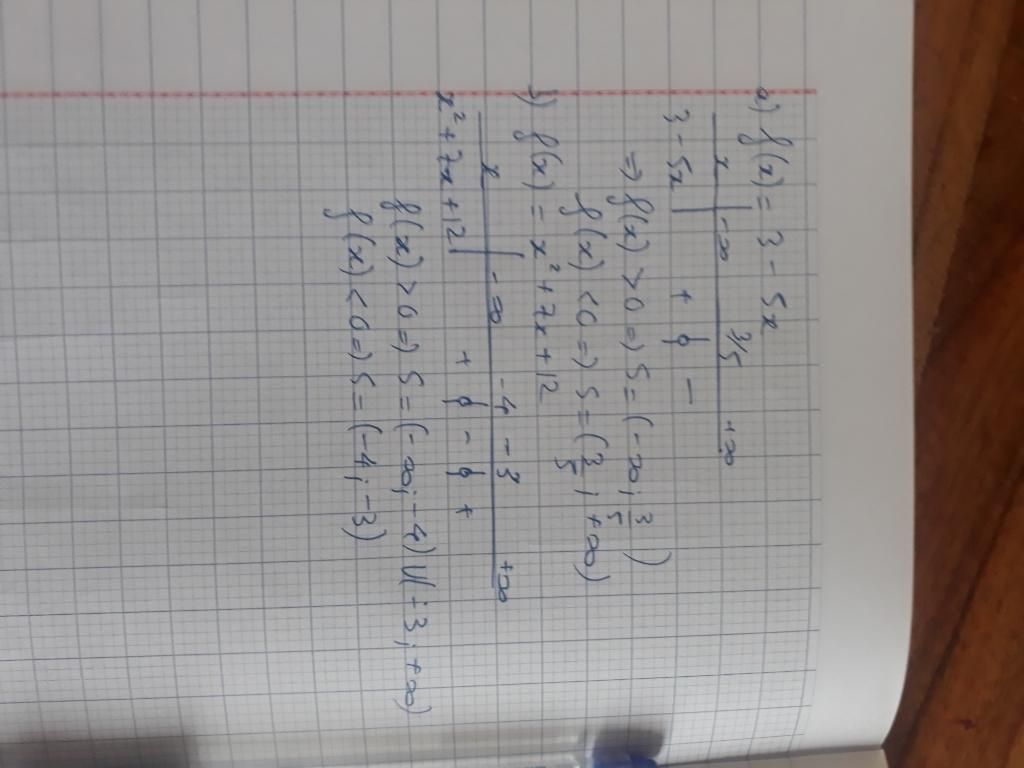 a) f(x) = 3 - 5x
x | -∞ 3/5 +∞
3 - 5x | + 0 -
=) f(x) > 0 =) S = (-∞; 3/5)
f(x) < 0 =) S = (3/5; +∞)
b) f(x) = x² + 7x + 12
x | -∞ -4 -3 +∞
x² + 7x + 12 | + 0 - 0 +
f(x) > 0 =) S = (-∞; -4) U (-3; +∞)
f(x) < 0 =) S = (-4; -3)